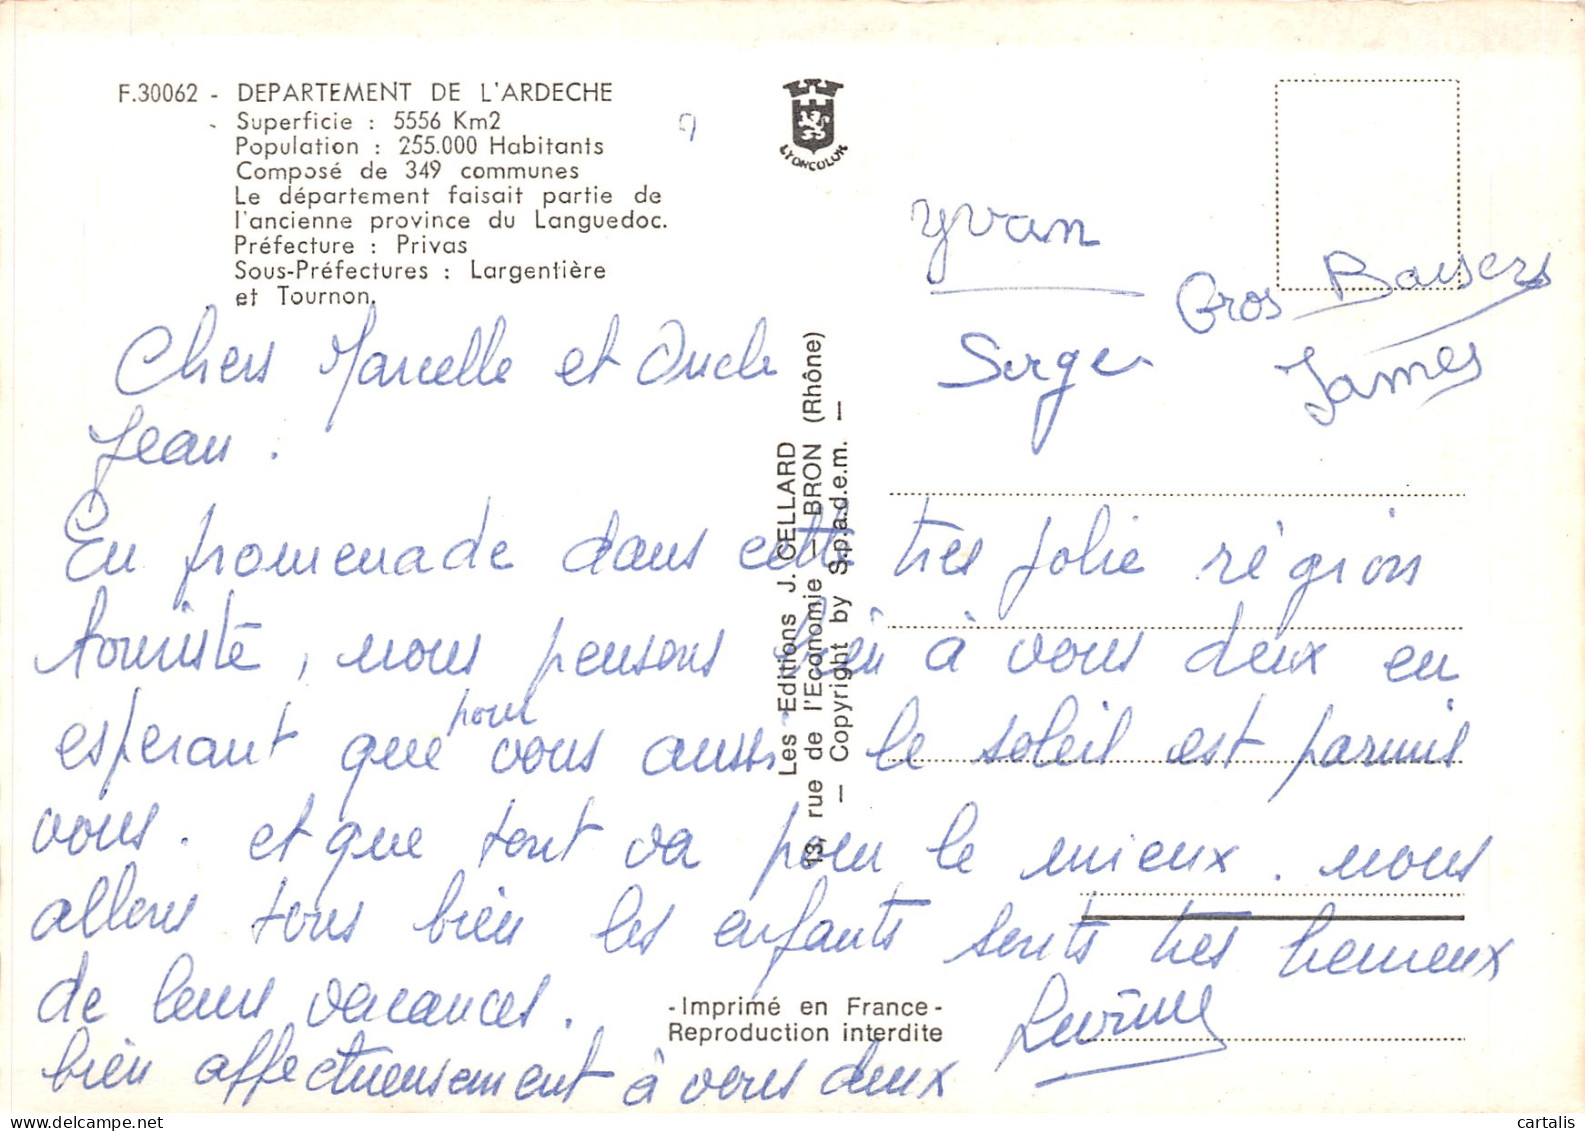 F.30062 - DEPARTEMENT DE L'ARDECHE
Superficie : 5556 Km2
Population : 255.000 Habitants
Composé de 349 communes
Le département faisait partie de
l'ancienne province du Languedoc.
Préfecture : Privas
Sous-Préfectures : Largentière
et Tournon.
LYONCOLOR
Yvan
Gros Baisers
Serge
James
Chers Marcelle et Oncle
Jean.
En promenade dans cette tres jolie région
touriste, nous pensons bien à vous deux en
esperant que pour vous aussi le soleil est parmis
vous. et que tout va pour le mieux. nous
allons tous bien les enfants sonts tres heureux
de leurs vacances.
bien affectueusement à vous deux
Les Editions J. CELLARD
13, rue de l'Economie - BRON (Rhône)
— Copyright by S.p.a.d.e.m. —
-Imprimé en France-
Reproduction interdite
cartalis